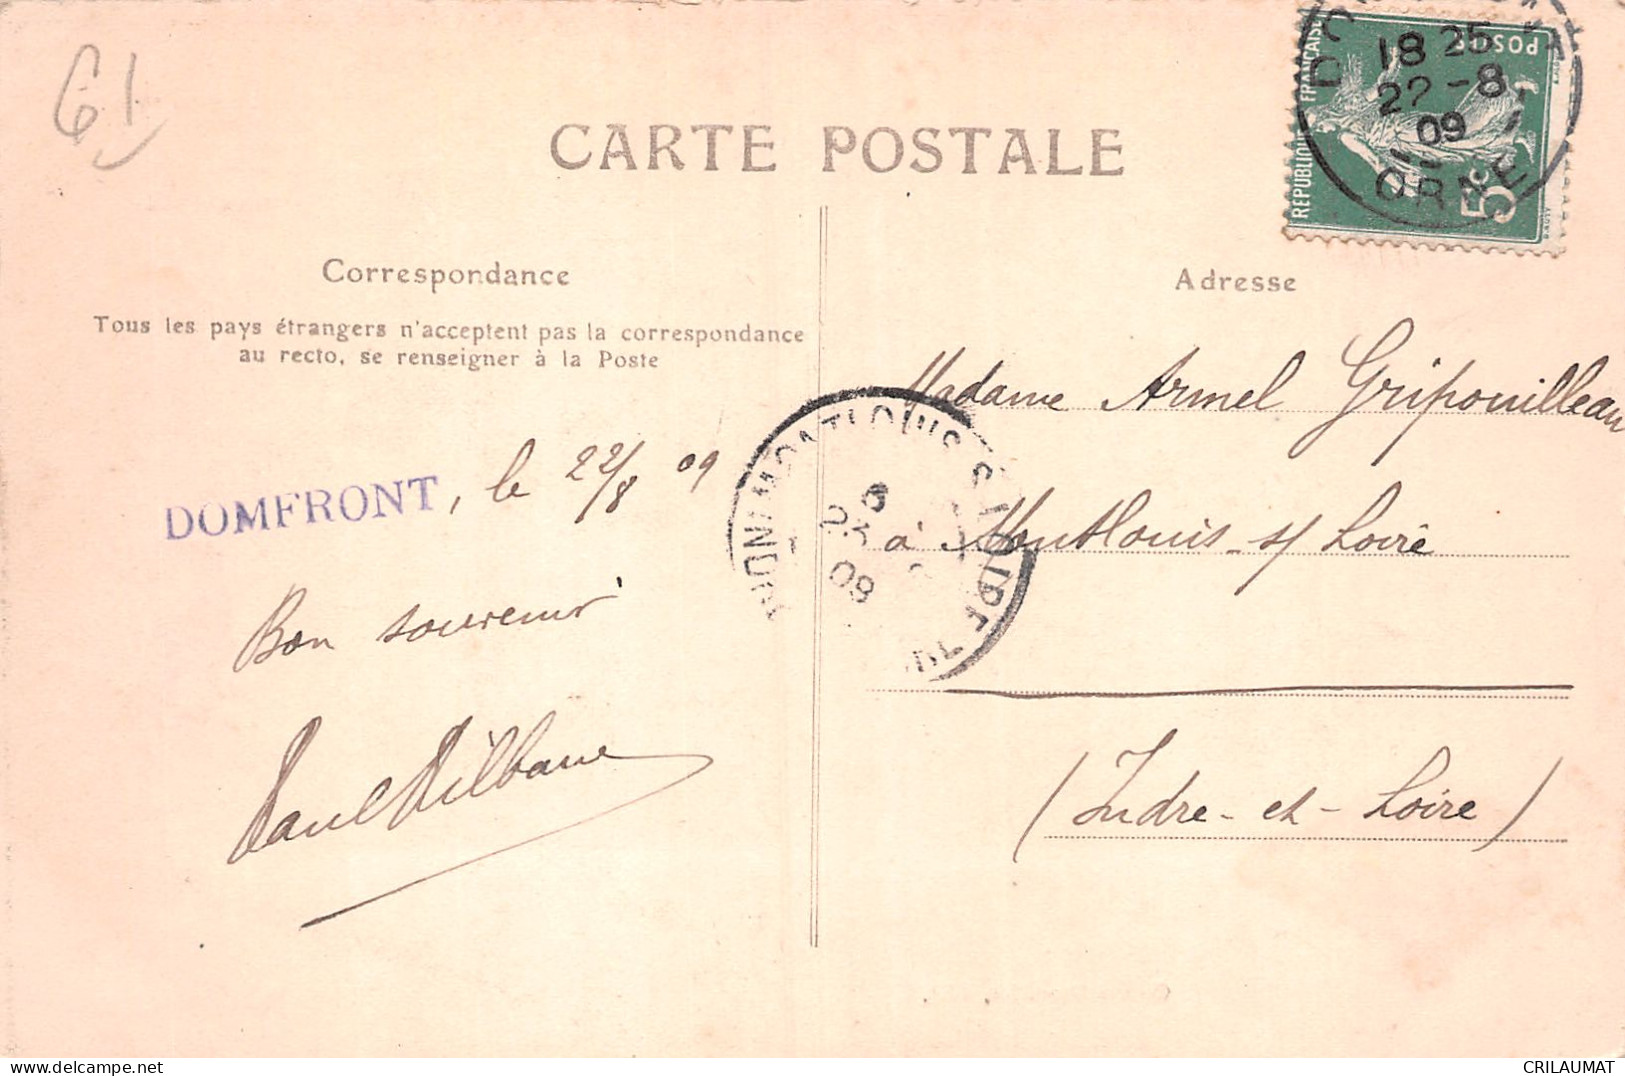 61
CARTE POSTALE
RÉPUBLIQUE FRANÇAISE
POSTES
5c
18 25
22-8
09
ORNE
Correspondance
Tous les pays étrangers n'acceptent pas la correspondance
au recto, se renseigner à la Poste
DOMFRONT, le 22/8 09
Bon souvenir
Paul
Adresse
Madame Armel Gripouilleau
à Montlouis-s/ Loire
(Indre-et-Loire)
MONTLOUIS S. LOIRE
23
09
CRILAUMAT